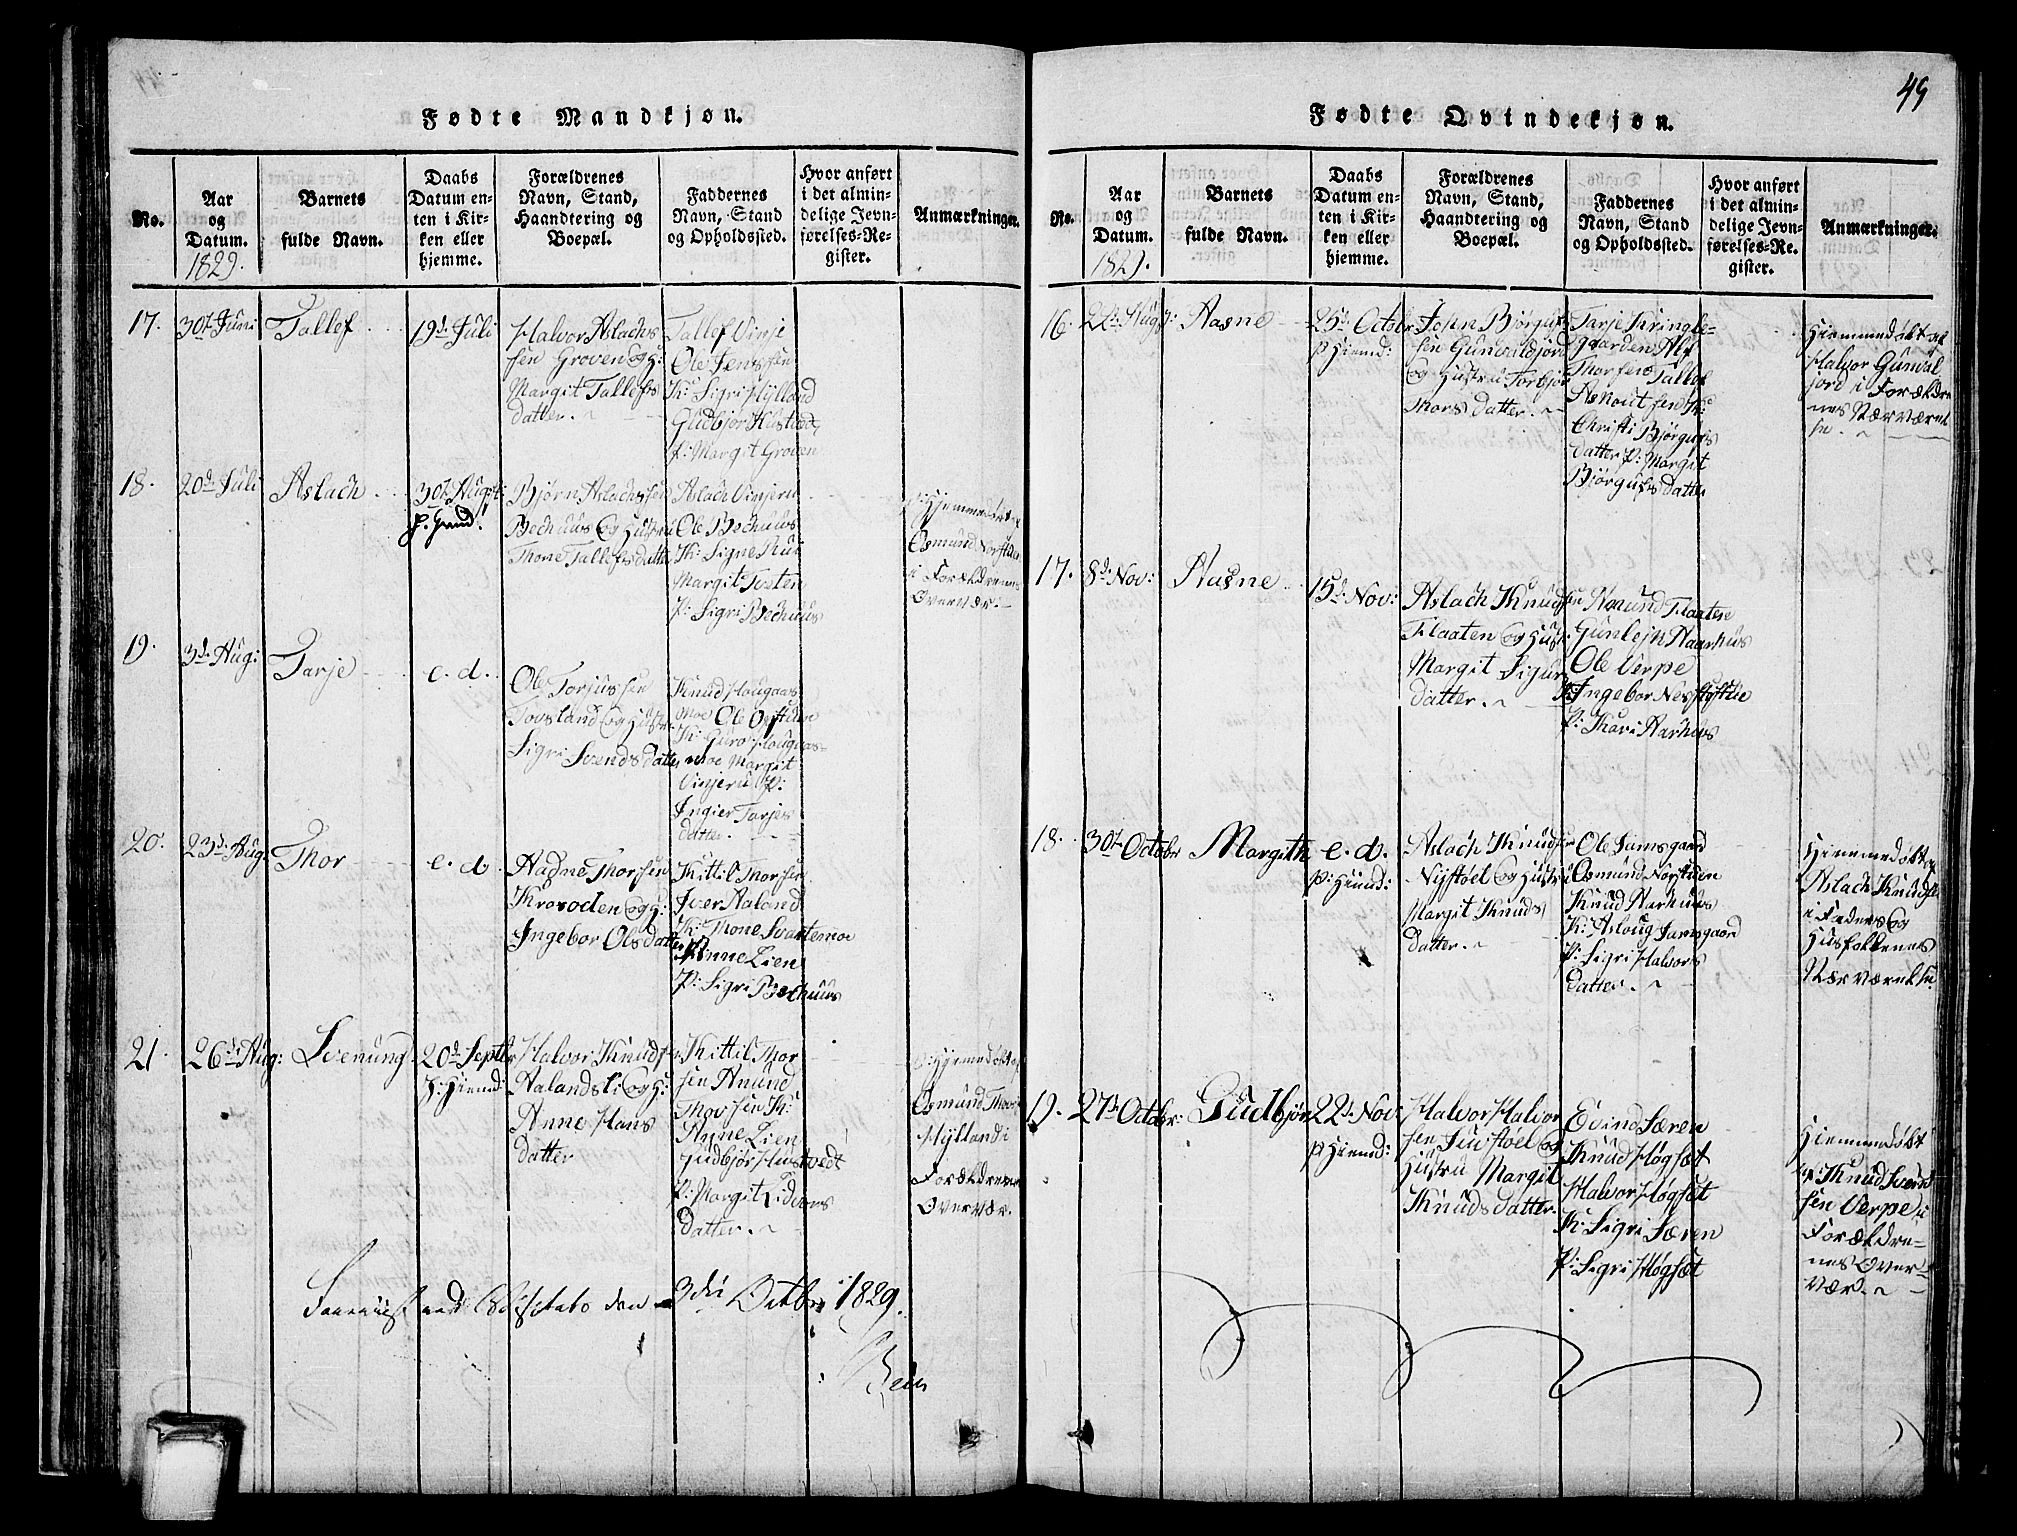 49
Fødte Mandkjøn.
No.
Aar
og
Datum.
1829.
Barnets
fulde Navn.
Daabs
Datum en-
ten i Kir-
ken eller
hjemme.
Forældrenes
Navn, Stand,
Haandtering og
Boepæl.
Faddernes
Navn, Stand
og Opholdssted.
Hvor anført
i det almin-
delige Jevn-
førelses-Re-
gister.
Anmærkninger.
17.
30t Juni
Tallef
19d Juli
Halvor Aslachs
sen Groven og H:
Margit Tallefs
datter.
Tallef Vinje
Ole Jenssen
K: Sigri Hylland
Gudbjør Hustved,
P: Margit Groven
18.
20d Juli
Aslach
30t Augst:
Bjørn Aslachssen
Bechuus og Hustru
Thone Tallefsdatter
Aslach Vinjeru
Ole Bechuus
K: Signe Rui
Margit Tosten
P: Sigri Bechuus
Hjemmedøbt af
Osmund Norstuen
i Forældrenes
Overvær.
19.
3d Aug:
Tarje
e. d.
Ole Torjussen
Tovsland og Hustr:
Sigri Svendsdatter
Knud Hougaas
moe Ole
K: Guro Hougaas-
moe Margit
Vinjeru P:
Ingier Tarjes
datter.
20.
23d Aug:
Thor
e. d.
Aadne Thorssen
Krosoden og H:
Ingebor Olsdatter
Kittil Thorssen
Iver Aaland
K: Thone Svartemoe
Anne Lien
P: Sigri Bechuus
21.
26d Aug:
Svenung
20d Septbr
P: Hiemd:
Halvor Knudsen
Aalandsli og H:
Anne Hans
datter
Kittil Thor
sen Anund
Thorsen K:
Anne Lien
Gudbjør Hustvedt
P: Margit
datter.
Osmund Thors
Hylland i
Forældrenes
Overvær.
den 3die Octbr 1829.
Fødte Qvindekjøn.
No.
Aar
og
Datum.
1829.
Barnets
fulde Navn.
Daabs
Datum en-
ten i Kir-
ken eller
hjemme.
Forældrenes
Navn, Stand,
Haandtering og
Boepæl.
Faddernes
Navn, Stand
og Opholdssted.
Hvor anført
i det almin-
delige Jevn-
førelses-Re-
gister.
Anmærkninger.
16.
22d Aug:
Aasne
25d Octbr
P Hiemd:
John Bjørguf
sen Gunvaldjord
og Hustru Torbjør
Thorsdatter.
Tarje Kringle-
gaarden Alf
Thorsen Tallef
Asnoutsen K:
Christi Bjørgufs
datter P: Margit
Bjørgufsdatter
Hiemmedøbt af
Halvor Gunval
jord i Forældre
nes Nærværel
se.
17.
8d Nov:
Aasne
15d Nov:
Aslach Knudsen
Flaaten og Hust:
Margit Sigur
datter.
Flaaten
Gunlejk Aarhus
Ole Verpe
K: Ingebor
P: Kari Aarhuus
18.
30t Octobr
Margith
e. d.
P: Hiemd:
Aslach Knudsen
Nystoel og Hustru
Margit Knuds
datter.
Ole Jamsgaard
Osmund Norstuen
Knud Aarhuus
K: Aslaug Jamsgaard
P: Sigri Halvors
datter.
Hiemmedøbt af
Aslach Knudsen
i Faders og
Husfolkenes
Nærværelse.
19.
27d Octbr:
Gudbjør
22d Nov:
P Hiemd:
Halvor Halvor
sen Juvstøel og
Hustru Margit
Knudsdatter.
Evind Særen
Knud Høgsæt
Halvor Høgsæt
K: Sigri Særen
P: Sigri Høgsæt
Hiemmedøbt
af Knud Svend
sen Verpe i
Forældre-
nes Over-
vær.